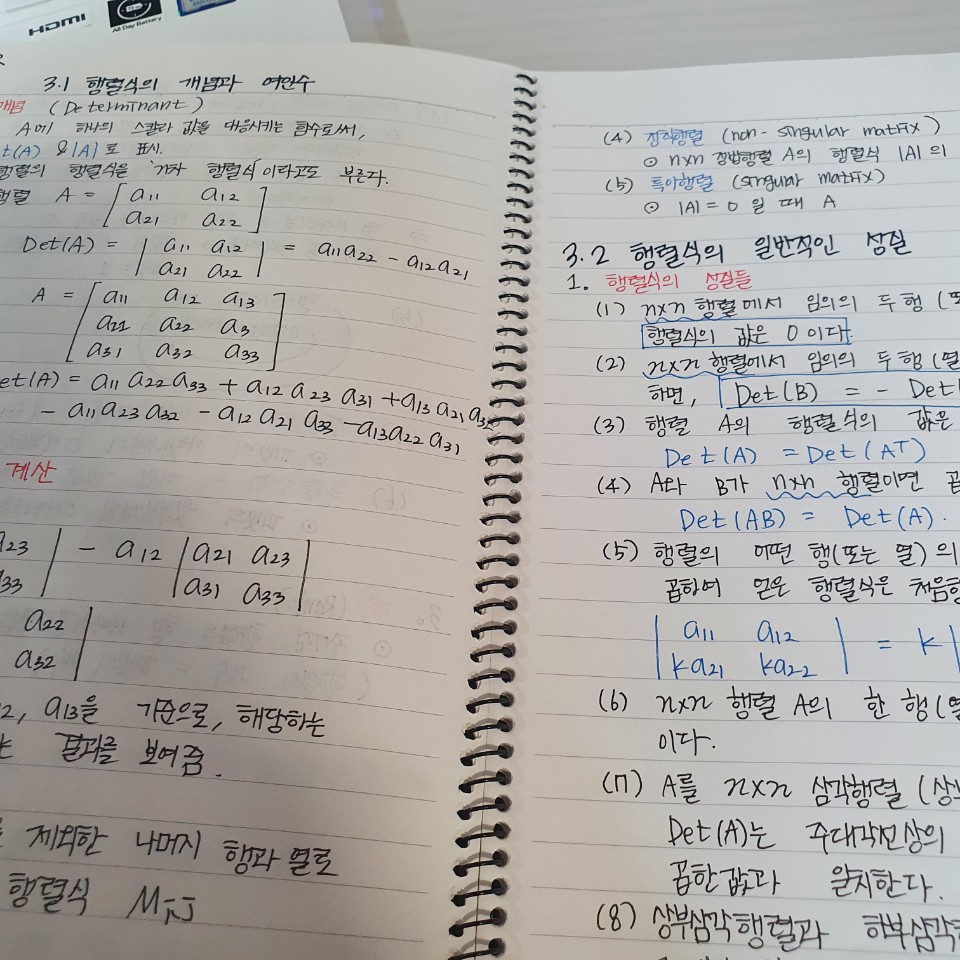 HDMI
All Day Battery
3.1 행렬식의 개념과 여인수
개념 (Determinant)
A에 하나의 스칼라 값을 대응시키는 함수로써,
t(A) 또는 |A|로 표시.
행렬의 행렬식을 n차 행렬식이라고도 부른다.
행렬 A = [ a11 a12
a21 a22 ]
Det(A) = | a11 a12 | = a11a22 - a12a21
| a21 a22 |
A = [ a11 a12 a13
a21 a22 a3
a31 a32 a33 ]
et(A) = a11 a22 a33 + a12 a23 a31 + a13 a21 a32
- a11 a23 a32 - a12 a21 a33 - a13 a22 a31
계산
a23 | - a12 | a21 a23 |
a33 | | a31 a33 |
a22 |
a32 |
12, a13을 기준으로, 해당하는
결과를 보여줌.
제외한 나머지 행과 열로
행렬식 Mij
(4) 정칙행렬 (non-singular matrix)
⊙ n×n 정방행렬 A의 행렬식 |A|의
(5) 특이행렬 (singular matrix)
⊙ |A|=0 일 때 A
3.2 행렬식의 일반적인 성질
1. 행렬식의 성질들
(1) n×n 행렬에서 임의의 두 행 (또
행렬식의 값은 0이다.
(2) n×n 행렬에서 임의의 두 행(열
하면, Det(B) = - Det(
(3) 행렬 A의 행렬식의 값은
Det(A) = Det(AT)
(4) A와 B가 n×n 행렬이면 곱
Det(AB) = Det(A).
(5) 행렬의 어떤 행(또는 열)의
곱하여 얻은 행렬식은 처음행
| a11 a12 | = k |
| ka21 ka22 |
(6) n×n 행렬 A의 한 행(열
이다.
(7) A를 n×n 삼각행렬 (상부
Det(A)는 주대각선상의
곱한값과 일치한다.
(8) 상부삼각행렬과 하부삼각행